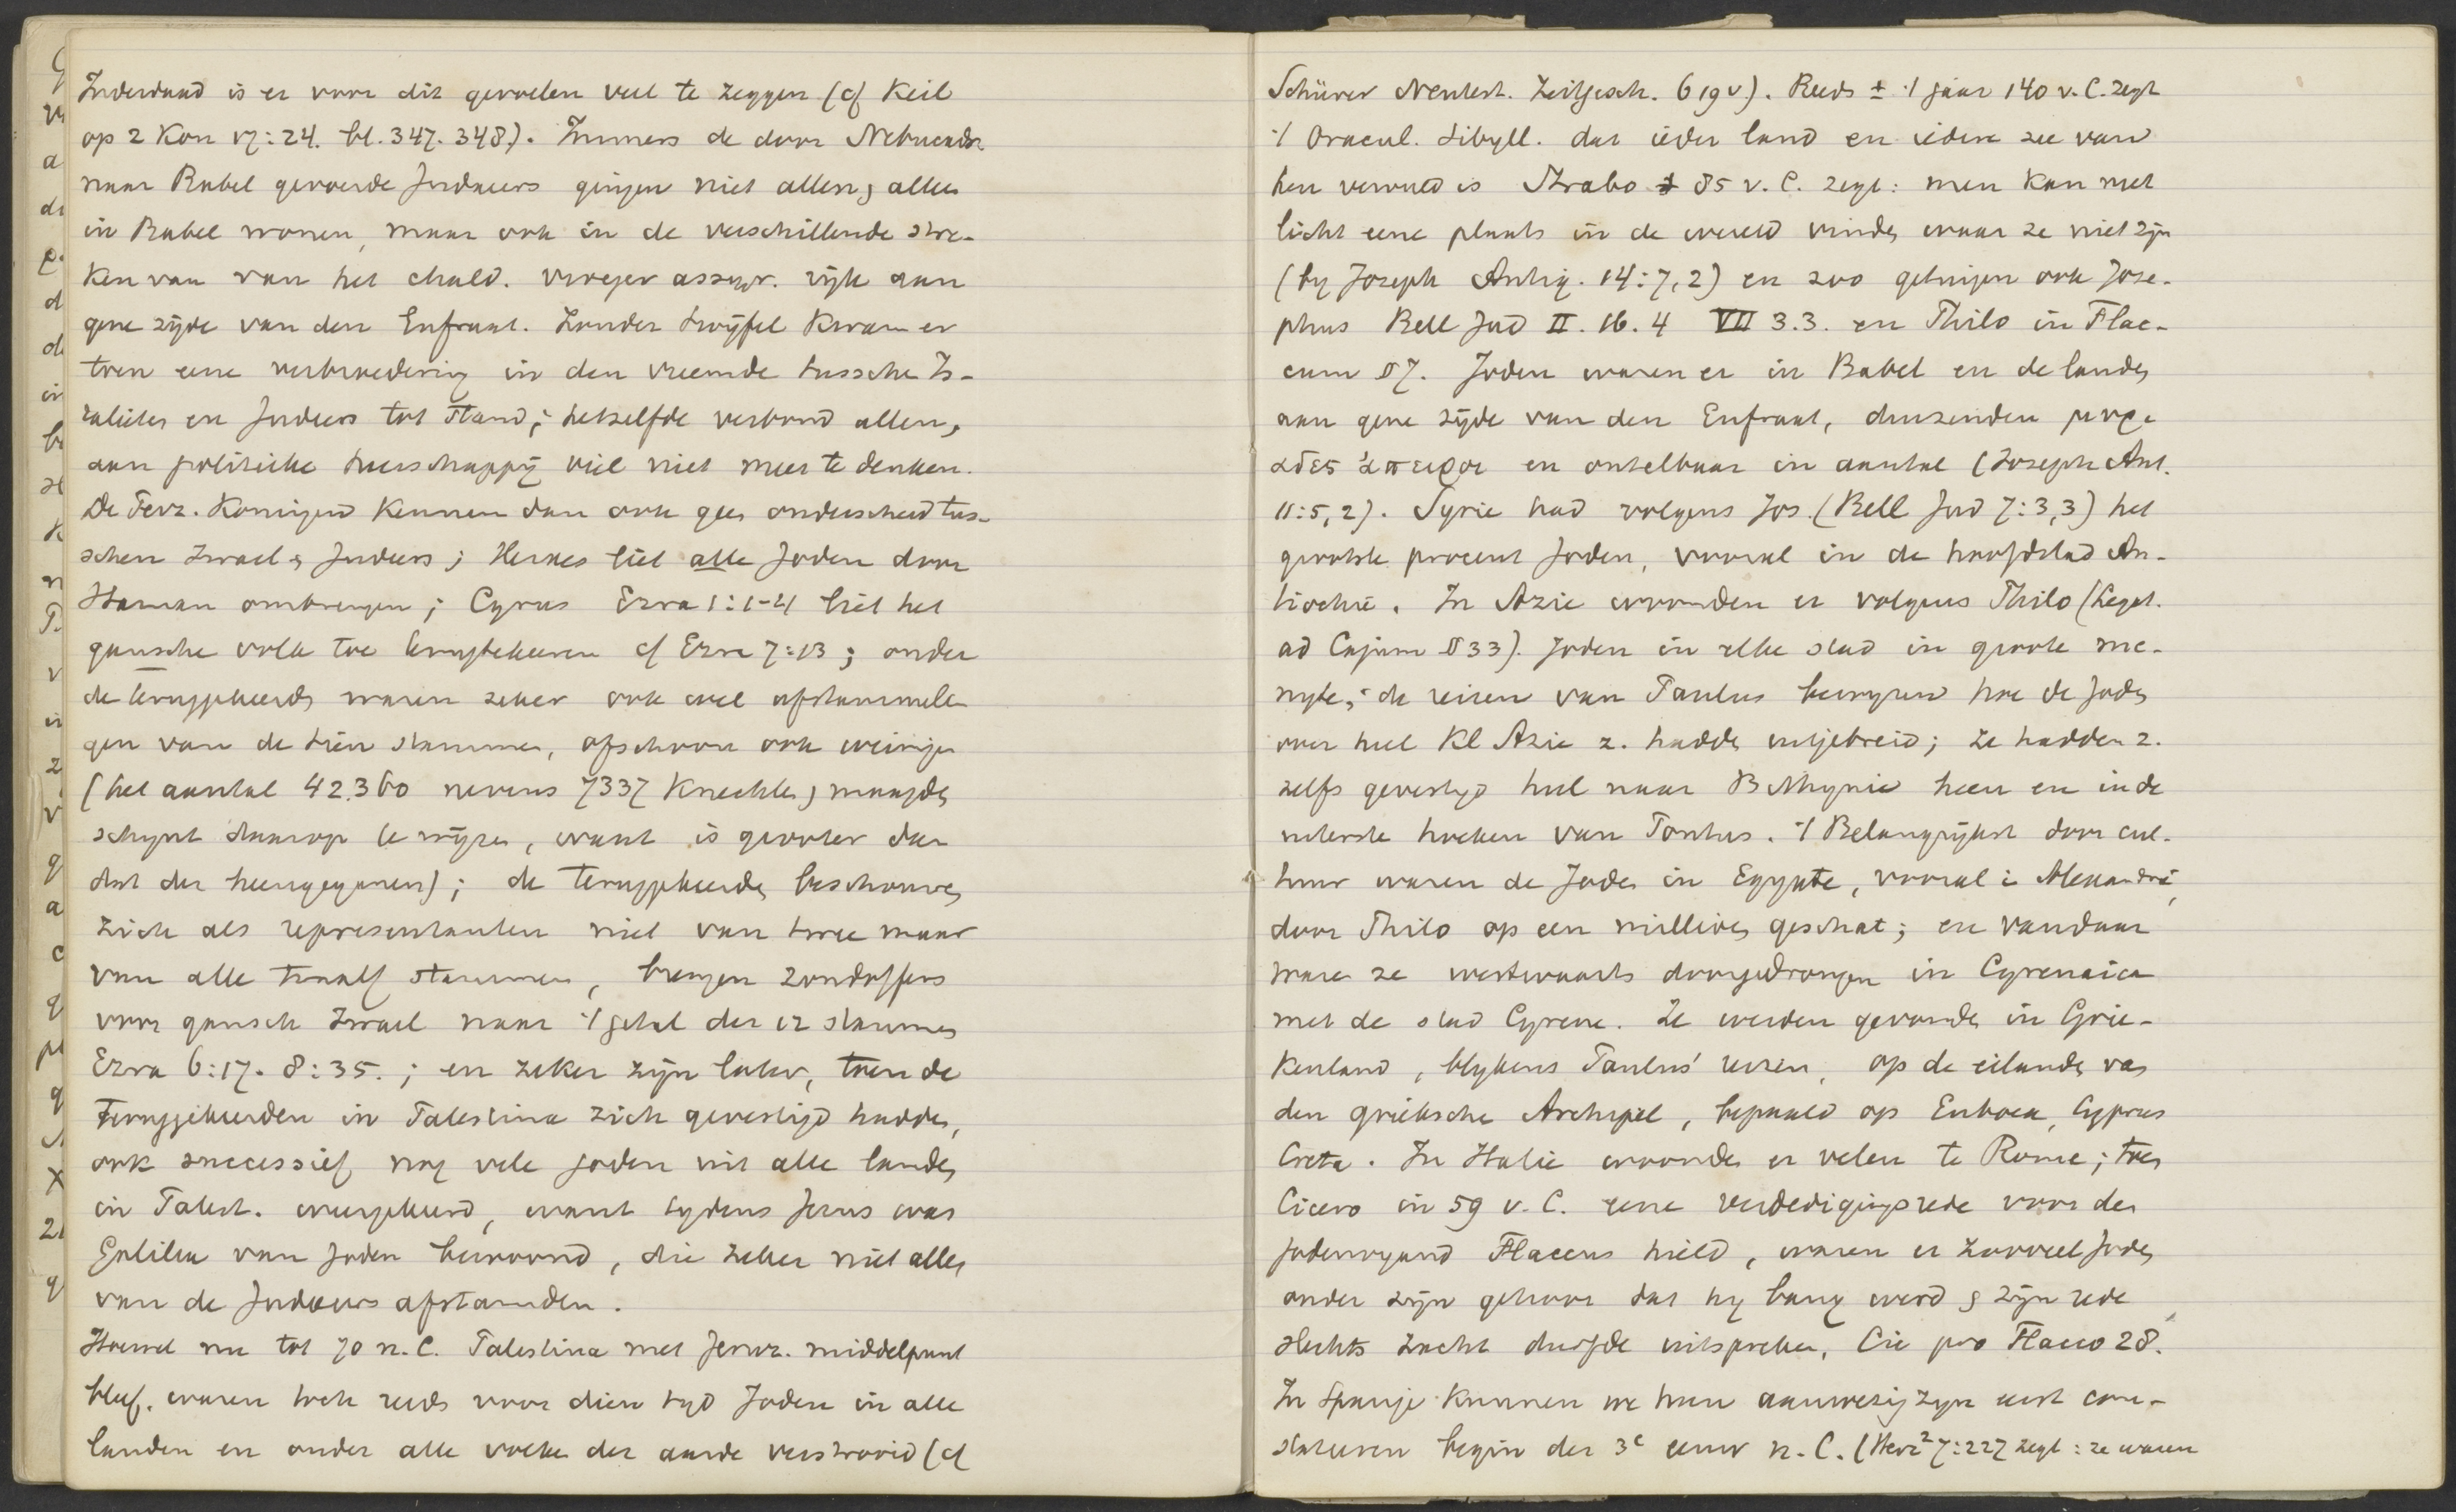 Inderdaad is er voor dit gevoelen veel te zeggen (cf Keil
op 2 Kon 17:24. bl. 347. 348). Immers de door Nebucadn.
naar Babel gevoerde Judaeers gingen niet allen, alleen
in Babel wonen, maar ook in de verschillende stre-
ken van van het chald. vroeger assyr. rijk aan
gene zijde van den Eufraat. Zonder twijfel kwam er
toen eene verbroedering in den vreemde tusschen Is-
raelieten en Judeers tot stand; hetzelfde verbond allen,
aan politieke heerschappij viel niet meer te denken.
De Perz. Koningen kennen dan ook geen onderscheid tus-
schen Israel & Judeers; Xerxes liet alle Joden door
Haman ombrengen; Cyrus Ezra 1:1-4 liet het
gansche volk toe terugtekeeren cf Ezra 7:13; onder
de teruggekeerden waren zeker ook wel afstammelin
gen van de tien stammen, ofschoon ook weinigen
(het aantal 42.360 nevens 7337 knechten, maagden
schynt daarop te wijzen, want is grooter dan
dat der heengeganen); de teruggekeerden beschouwen
zich als representanten niet van twee maar
van alle twaalf stammen, brengen zondoffers
voor gansch Israel naar 't getal der 12 stammen
Ezra 6:17. 8:35.; en zeker zijn later, toen de
teruggekeerden in Palestina zich gevestigd hadden,
ook successief nog vele joden uit alle landen
in Palest. weergekeerd, want tydens Jezus was
Galilea van Joden bewoond, die zeker niet allen
van de Judaeers afstamden.
Hoewel nu tot 70 n.C. Palestina met Jeruz. middelpunt
bleef, waren toch reeds voor dien tyd Joden in alle
landen en onder alle volken der aarde verstrooid (cf
Schürer Neutest. Zeitgesch. 619v). Reeds ± 't jaar 140 v.C. zegt
't Oracul. Sibyll. dat ieder land en iedere zee van
hen vervuld is Strabo ± 85 v.C. zegt: men kan niet
licht eene plaats in de wereld vinden waar ze niet zijn
(by Joseph Antiq. 14:7,2) en zoo getuigen ook Jose-
phus Bell Jud II. 16.4 VII 3.3. en Philo in Flac-
cum §7. Joden waren er in Babel en de landen
aan gene zijde van den Eufraat, duizenden μυρι
αδες ἀπειροι en ontelbaar in aantal (Joseph Ant.
11:5,2). Syrie had volgens Jos. (Bell Jud 7:3,3) het
grootste procent Joden, vooral in de hoofdstad An-
tiochie. In Azie woonden er volgens Philo (Legat.
ad Cajum §33). Joden in elke stad in groote me-
nigte; de reizen van Paulus bewyzen hoe de Joden
over heel Kl Azie z. hadden uitgebreid; ze hadden z.
zelfs gevestigd heel naar Bithynie heen en in de
uiterste hoeken van Pontus. 't Belangrijkst door cul-
tuur waren de Joden in Egypte, vooral in Alexandrië,
door Philo op een millioen geschat; en vandaar
waren ze westwaarts doorgedrongen in Cyrenaica
met de stad Cyrene. Ze werden gevonden in Grie-
kenland, blykens Paulus' reizen, op de eilanden van
den grieksche Archipel, bepaald op Euboea, Cyprus
Creta. In Italie woonden er velen te Rome; toen
Cicero in 59 v.C. eene verdedigingsrede voor den
Jodenvyand Flaccus hield, waren er zooveel Joden
onder zijn gehoor dat hy bang werd & zijn rede
slechts zacht durfde uitspreken, Cic pro Flacco 28.
In Spanje kunnen we hun aanwezig zyn eerst con-
stateeren begin der 3e eeuw n.C. (Herz² 7:227 zegt: ze waren